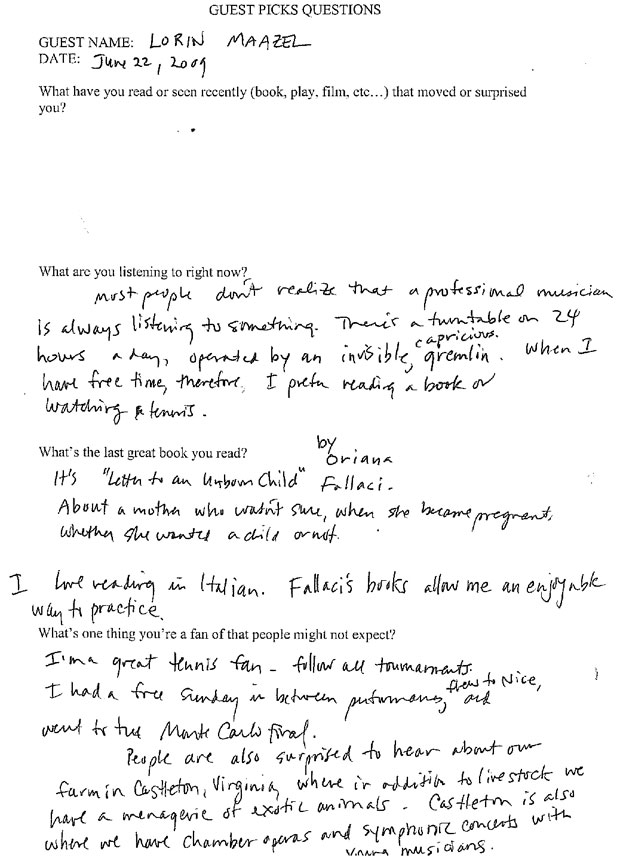 GUEST PICKS QUESTIONS
GUEST NAME: LORIN MAAZEL
DATE: June 22, 2009
What have you read or seen recently (book, play, film, etc...) that moved or surprised
you?
What are you listening to right now?
most people don't realize that a professional musician
is always listening to something. There's a turntable on 24
hours a day, operated by an invisible, capricious gremlin. When I
have free time, therefore, I prefer reading a book or
watching tennis.
What's the last great book you read?
It's "Letter to an Unborn Child" by Oriana Fallaci.
About a mother who wasn't sure, when she became pregnant,
whether she wanted a child or not.
I love reading in Italian. Fallaci's books allow me an enjoyable
way to practice.
What's one thing you're a fan of that people might not expect?
I'm a great tennis fan - follow all tournaments.
I had a free Sunday in between performances, flew to Nice, and
went to the Monte Carlo final.
People are also surprised to hear about our
farm in Castleton, Virginia, where in addition to livestock we
have a menagerie of exotic animals. Castleton is also
where we have chamber operas and symphonic concerts with
young musicians.